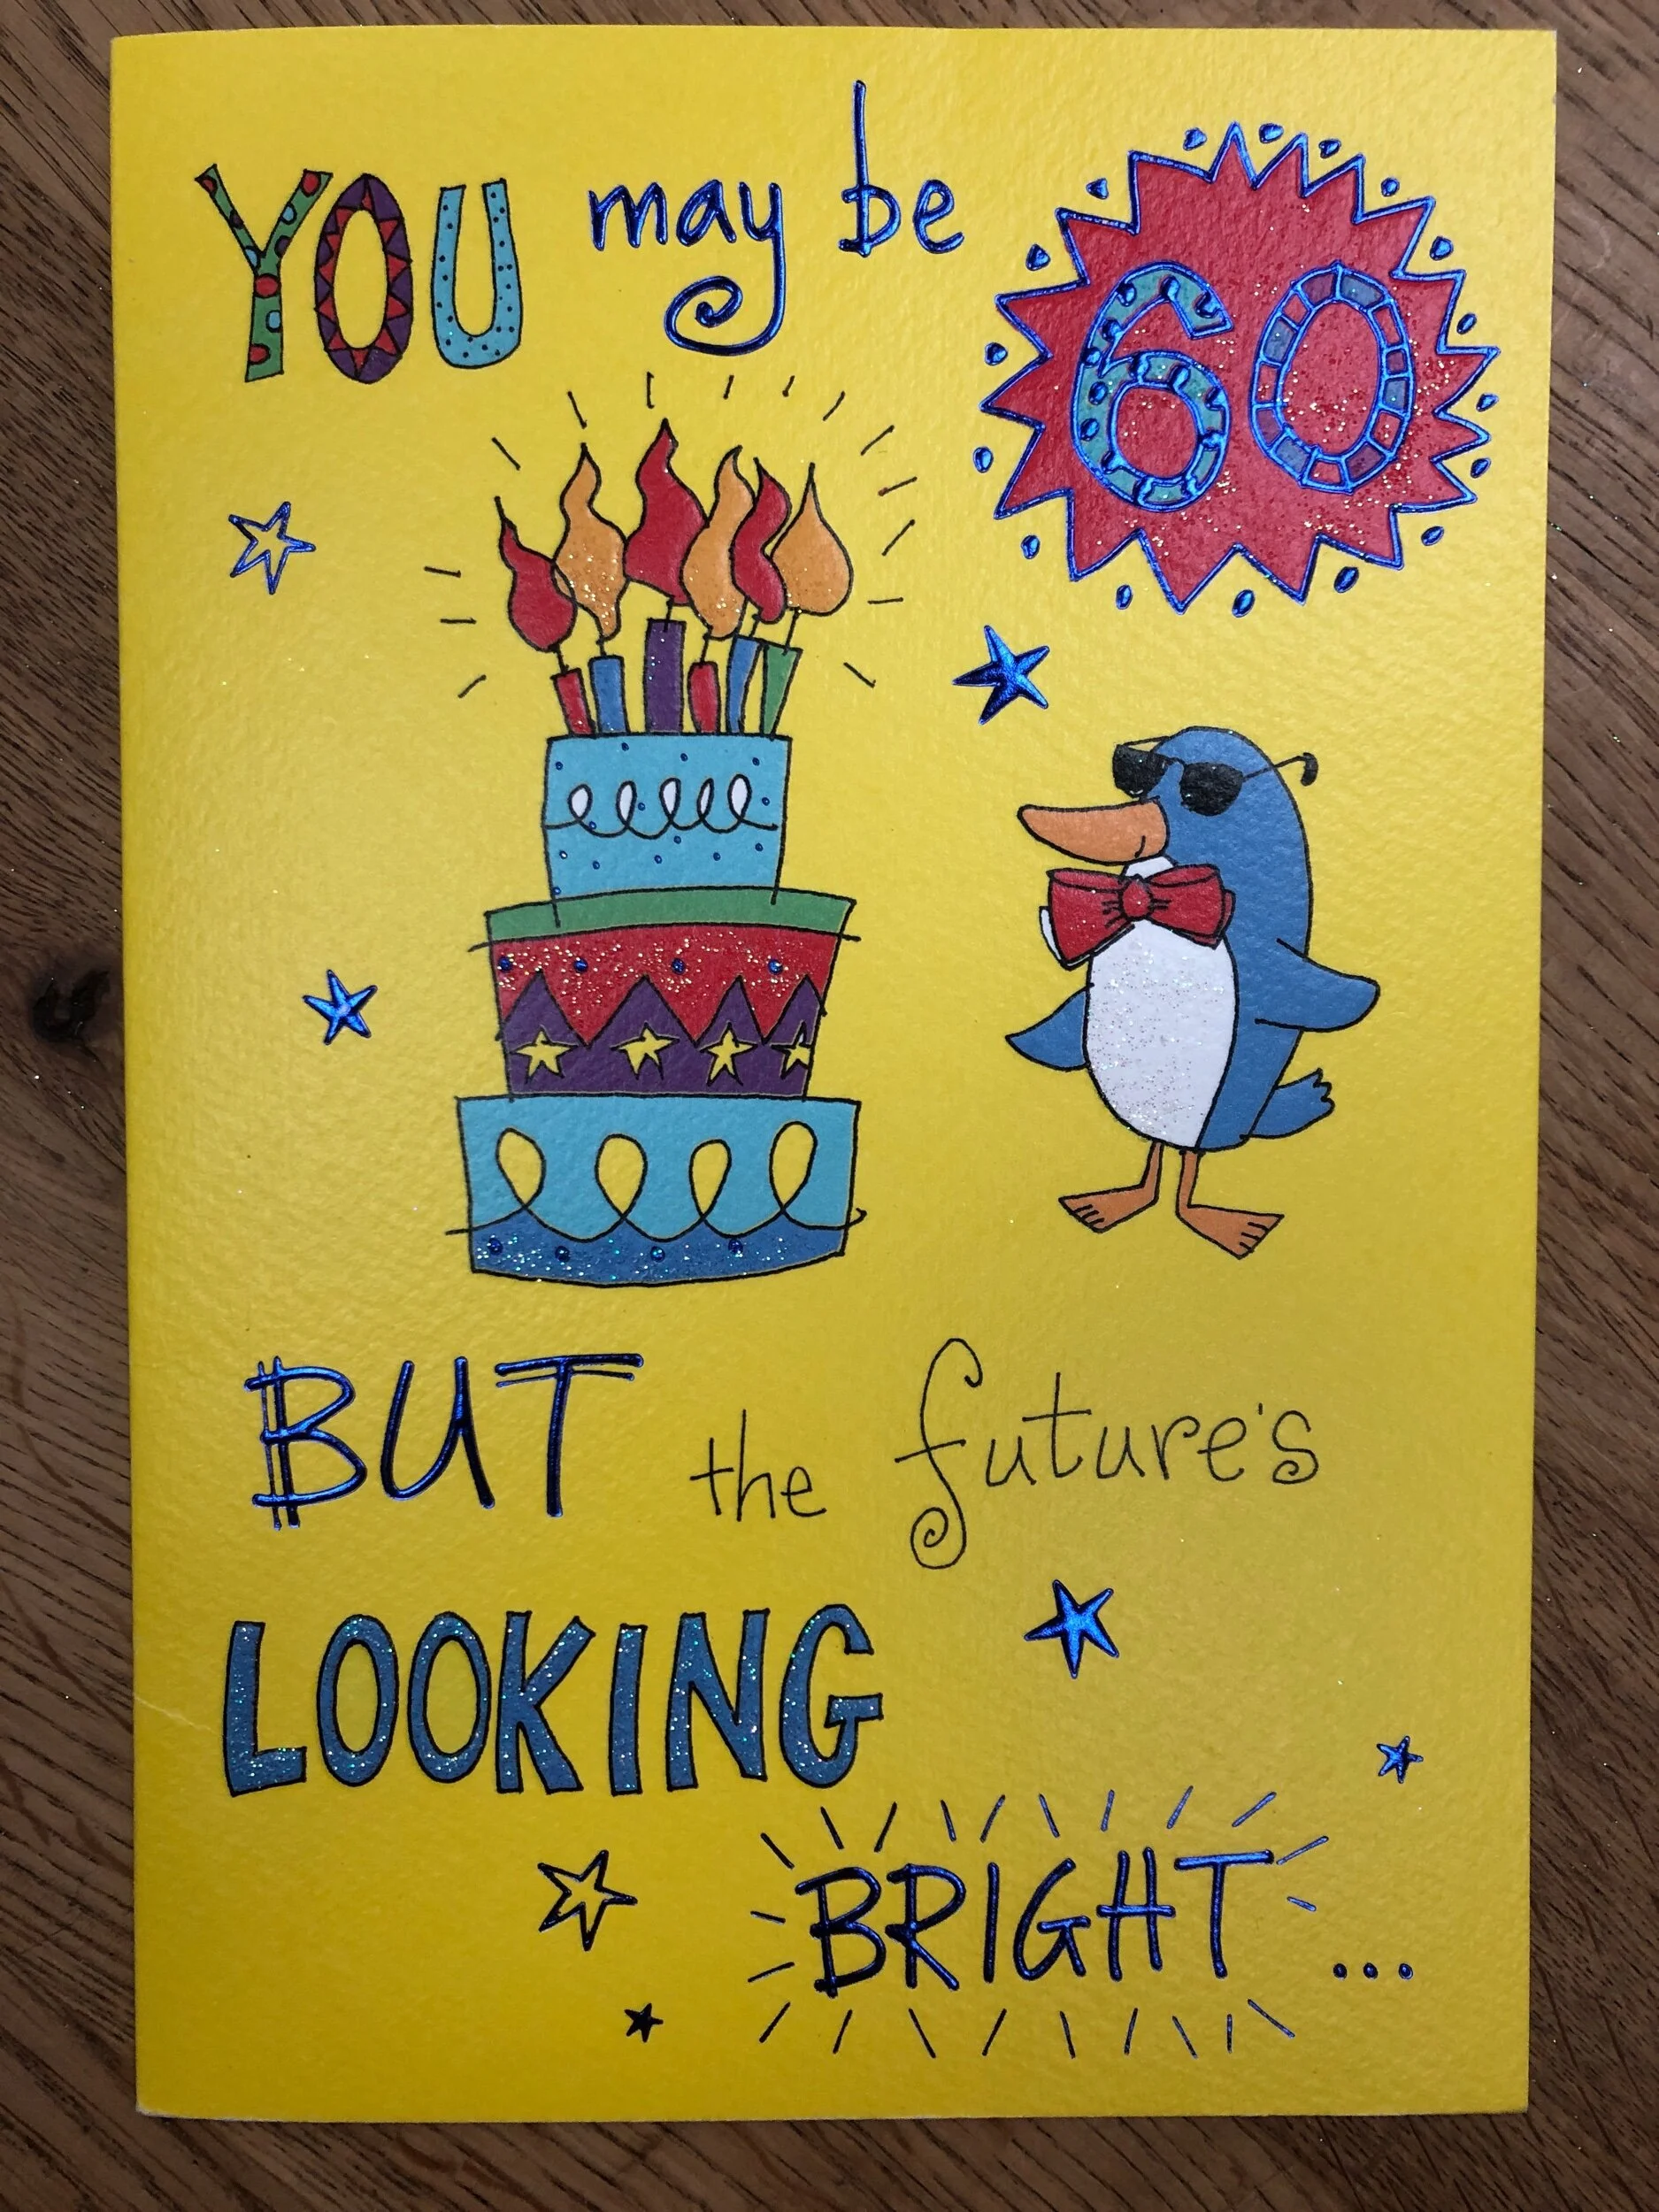 YOU may be 60
BUT the future's
LOOKING
BRIGHT...